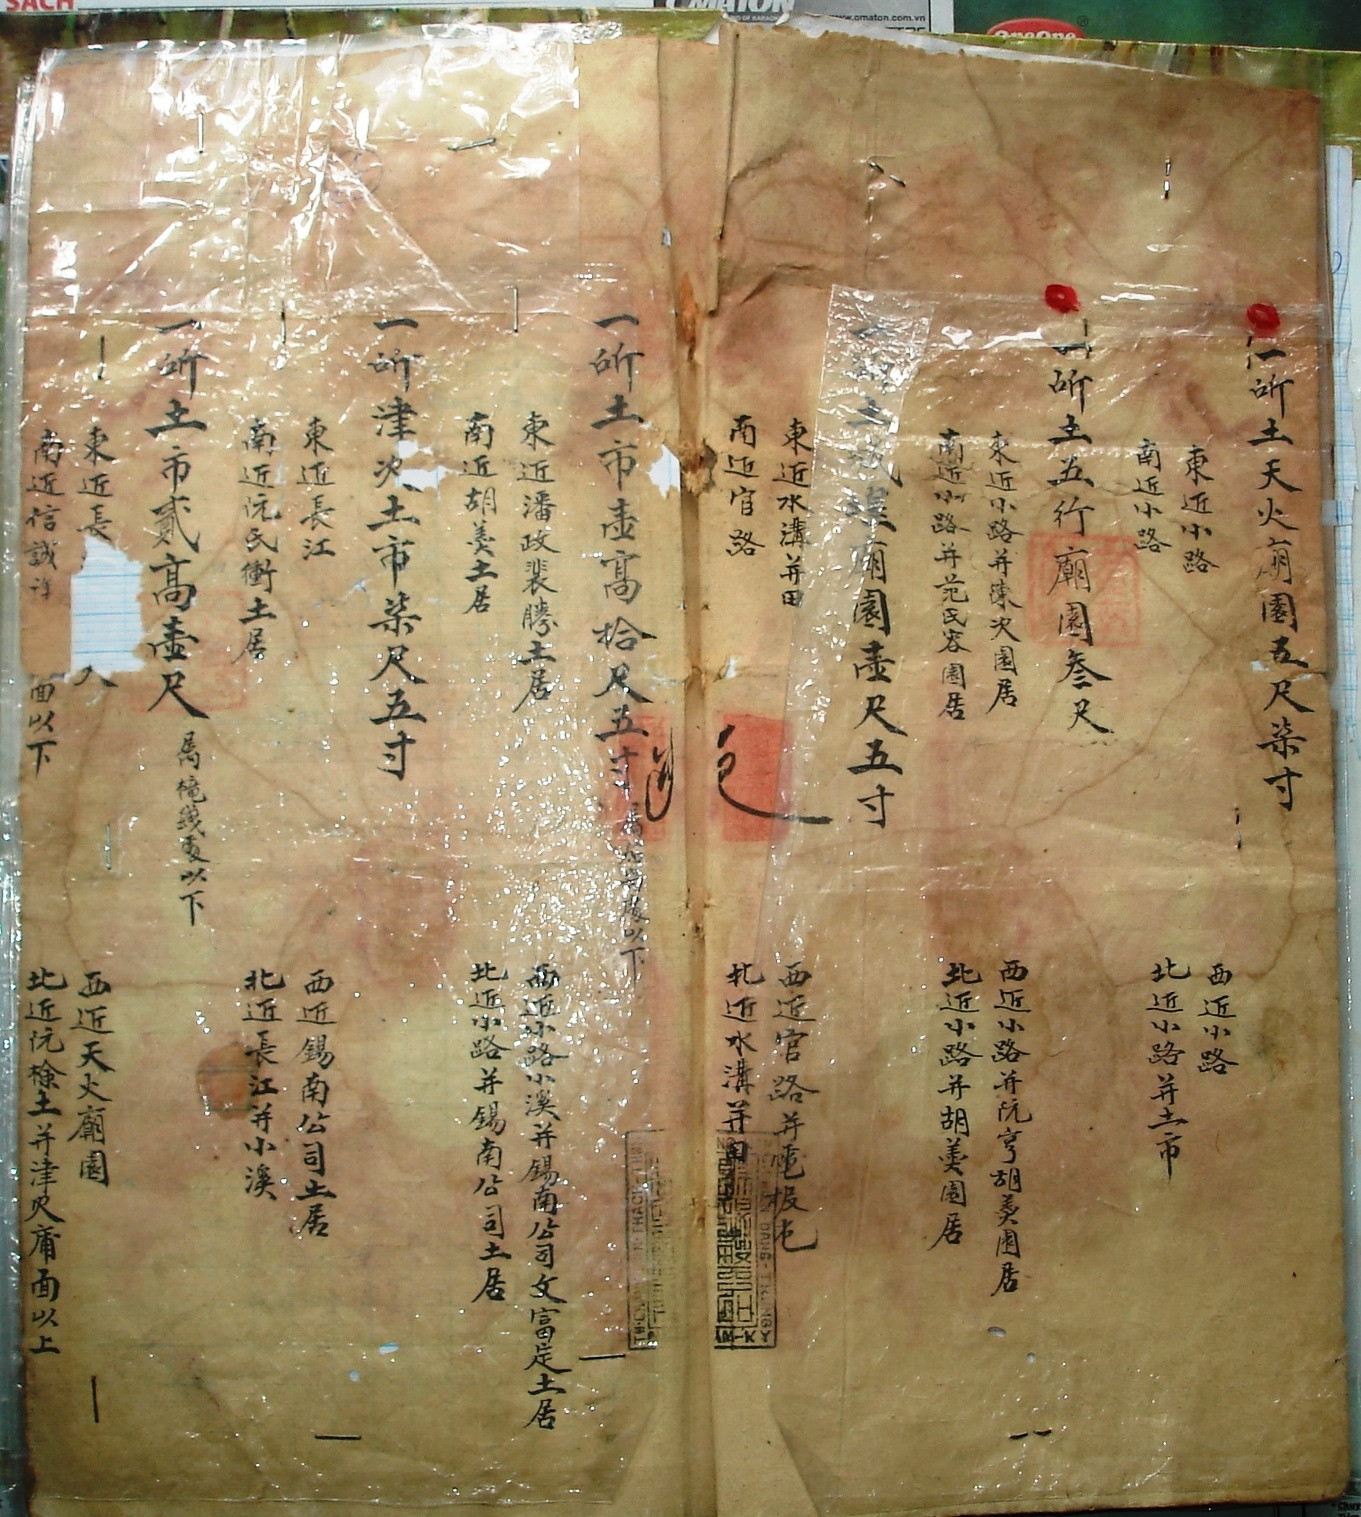 一所土天火廟園五尺柒寸
東近小路
西近小路
南近小路
北近小路并土市
一所土五行廟園叄尺
東近小路并陳次園居
西近小路并阮亨胡羙園居
南近小路并范民容園居
北近小路并胡羙園居
土城隍廟園壹尺五寸
東近水溝并田
西近官路并
南近官路
北近水溝并田
一所土市壹高拾尺五寸
以下
東近潘政裴勝土居
西近小路小溪并錫南公司文富定土居
南近胡羙土居
北近小路并錫南公司土居
一所津次土市柒尺五寸
東近長江
西近錫南公司土居
南近阮氏衝土居
北近長江并小溪
一所土市貳高壹尺
以下
東近長
西近天火廟園
南近信誠
面以下
北近阮檢土并津尺庯面以上
SACH
OMATON
www.omaton.com.vn
OneOne